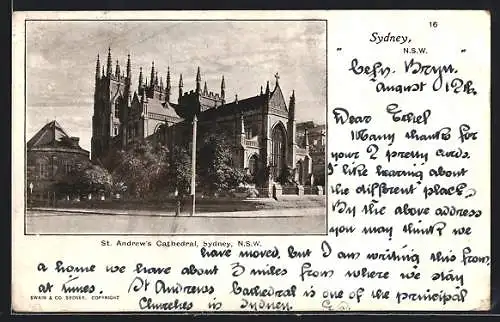 16
Sydney,
N.S.W.
"Cefn Bryn"
August 12th.
Dear Ethel
Many thanks for
your 2 pretty cards.
I like hearing about
the different places.
By the above address
you may think we
St. Andrew's Cathedral, Sydney, N.S.W.
have moved, but I am writing this from
a home we have about 3 miles from where we stay
at times. St Andrews Cathedral is one of the principal
SWAIN & CO. SYDNEY, COPYRIGHT
Churches in Sydney.